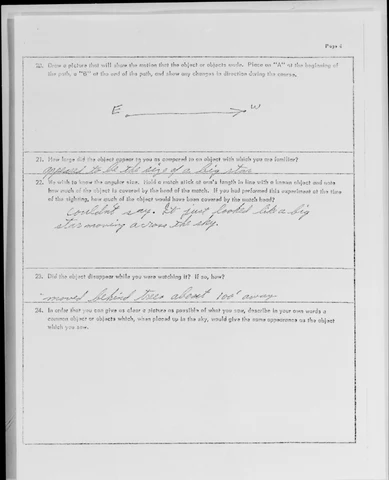 Page 4
20. Draw a picture that will show the motion that the object or objects made. Place an "A" at the beginning of
the path, a "B" at the end of the path, and show any changes in direction during the course.
E W
21. How large did the object appear to you as compared to an object with which you are familiar?
appeared to be the size of a big star
22. We wish to know the angular size. Hold a match stick at arm's length in line with a known object and note
how much of the object is covered by the head of the match. If you had performed this experiment at the time
of the sighting, how much of the object would have been covered by the match head?
Couldn't say. It just looked like a big
star moving across the sky.
23. Did the object disappear while you were watching it? If so, how?
moved behind trees about 100' away
24. In order that you can give as clear a picture as possible of what you saw, describe in your own words a
common object or objects which, when placed up in the sky, would give the same appearance as the object
which you saw.